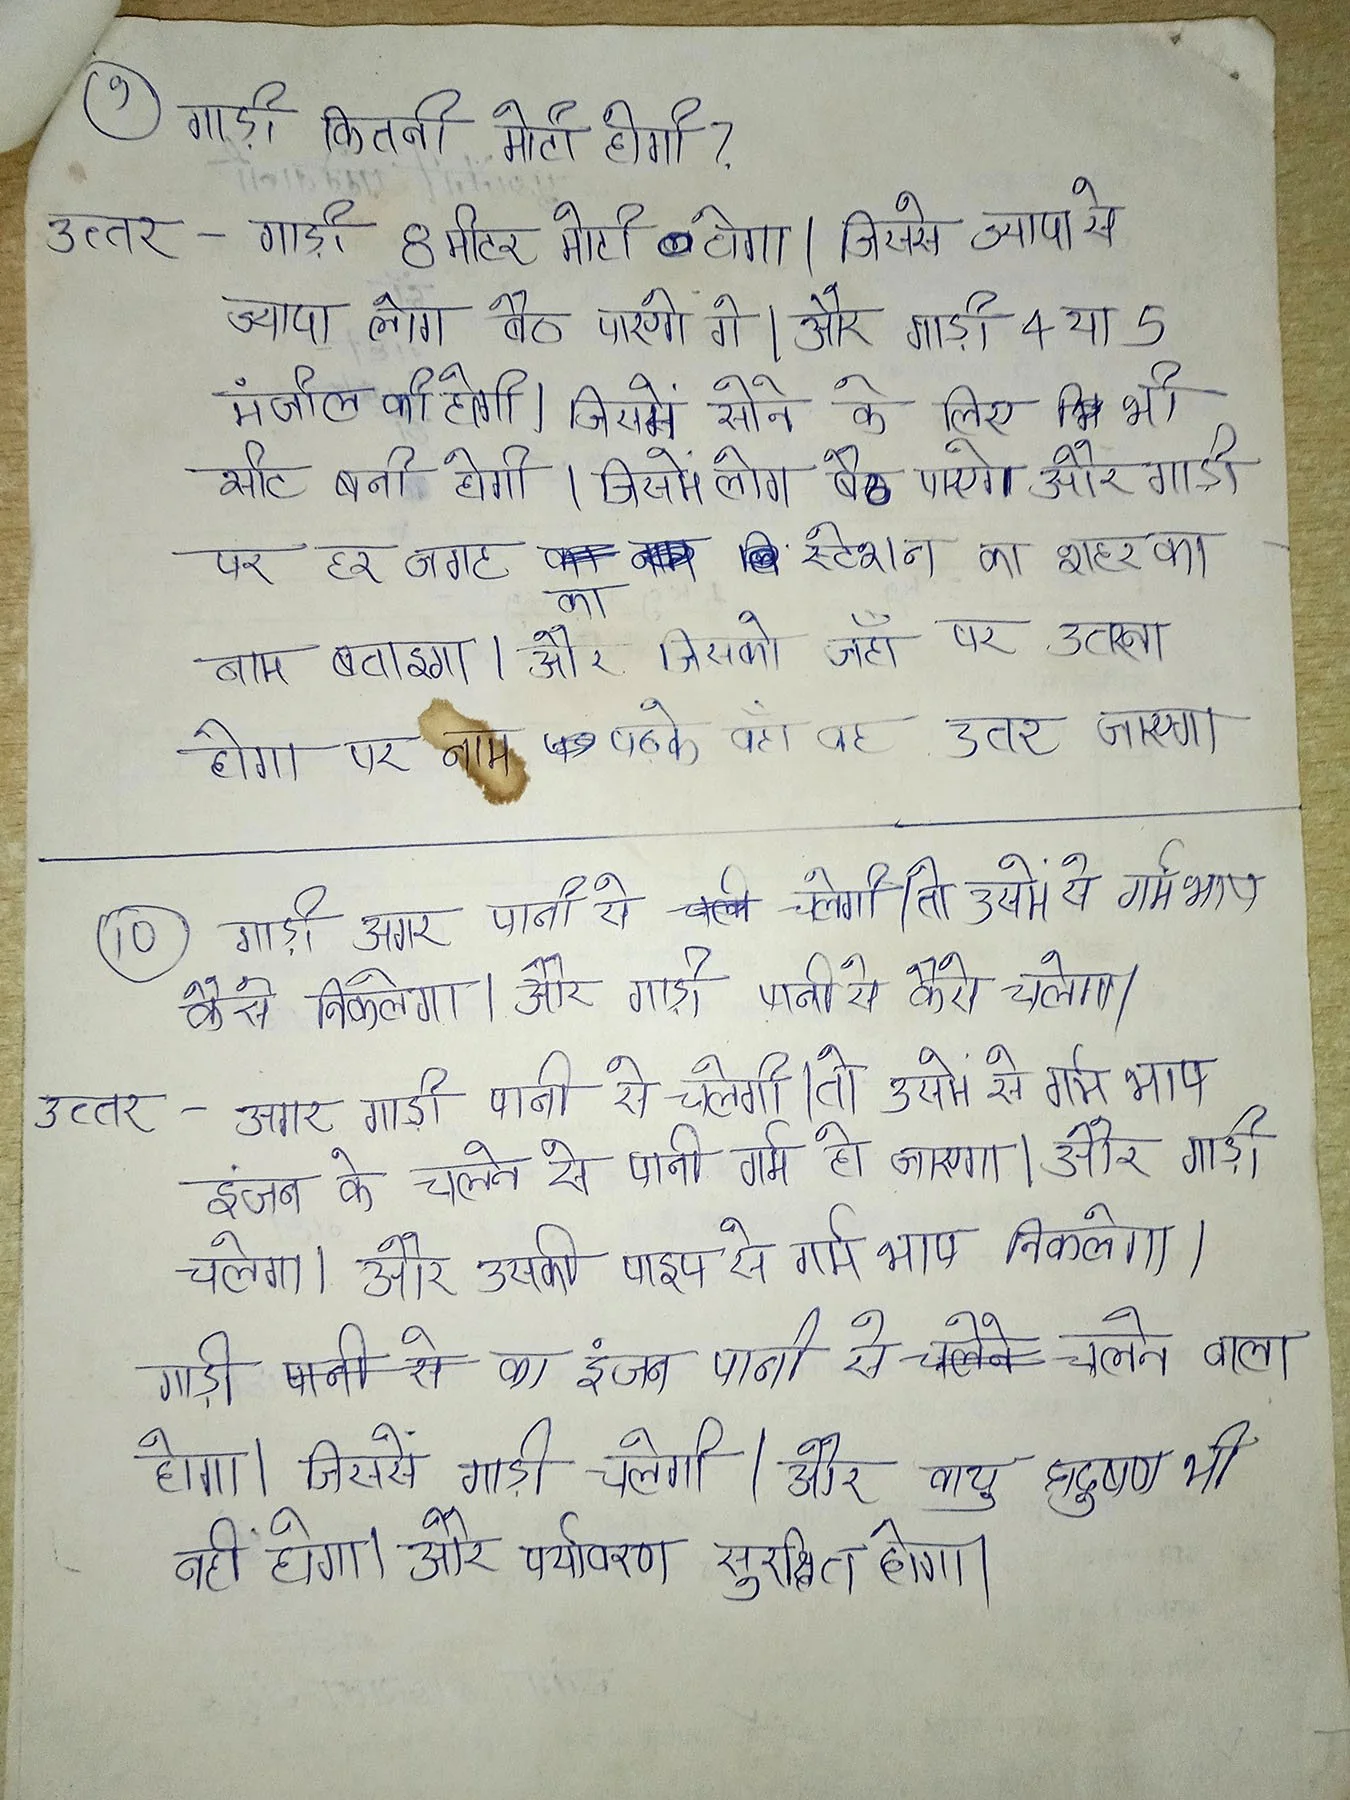 9 गाड़ी कितनी मोटी होगी?
उत्तर - गाड़ी 8 मीटर मोटी होगा। जिससे ज्यापा से
ज्यापा लोग बैठ पाएगे गे। और गाड़ी 4 या 5
मंजील की होगी। जिसमें सोने के लिए भी
सीट बनी होगी। जिसमें लोग बैठ पाएगे और गाड़ी
पर हर जगह का स्टेशन का शहर का
नाम बताइगा। और जिसको जहाँ पर उतरना
होगा पर नाम पढ़के वहाँ वह उतर जाएगा
10 गाड़ी अगर पानी से चलेगी। तो उसमें से गर्म भाप
कैसे निकलेगा। और गाड़ी पानी से कैसे चलेगा।
उत्तर - अगर गाड़ी पानी से चलेगी। तो उसमें से गर्म भाप
इंजन के चलने से पानी गर्म हो जाएगा। और गाड़ी
चलेगा। और उसकी पाइप से गर्म भाप निकलेगा।
गाड़ी पानी से का इंजन पानी से चलेने चलने वाला
होगा। जिससें गाड़ी चलेगी। और वायु प्रदुषण भी
नहीं होगा। और पर्यावरण सुरक्षित होगा।